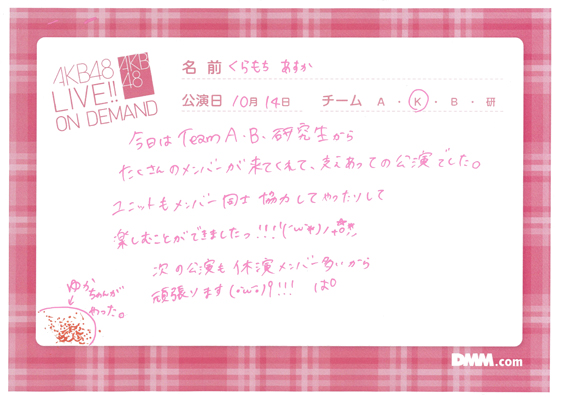 AKB48
LIVE!!
ON DEMAND
AKB
48
名前 くらもち あすか
公演日 10月14日 チーム A・K・B・研
今日は Team A・B・研究生から
たくさんのメンバーが来てくれて、支えあっての公演でした。
ユニットもメンバー同士 協力してやったりして
楽しむことができましたっ!!!(´ω`*)ノ
次の公演も休演メンバー多いから
頑張ります(・ω・)!!! ぱ。
ゆか
ちゃんが
やった。
DMM.com